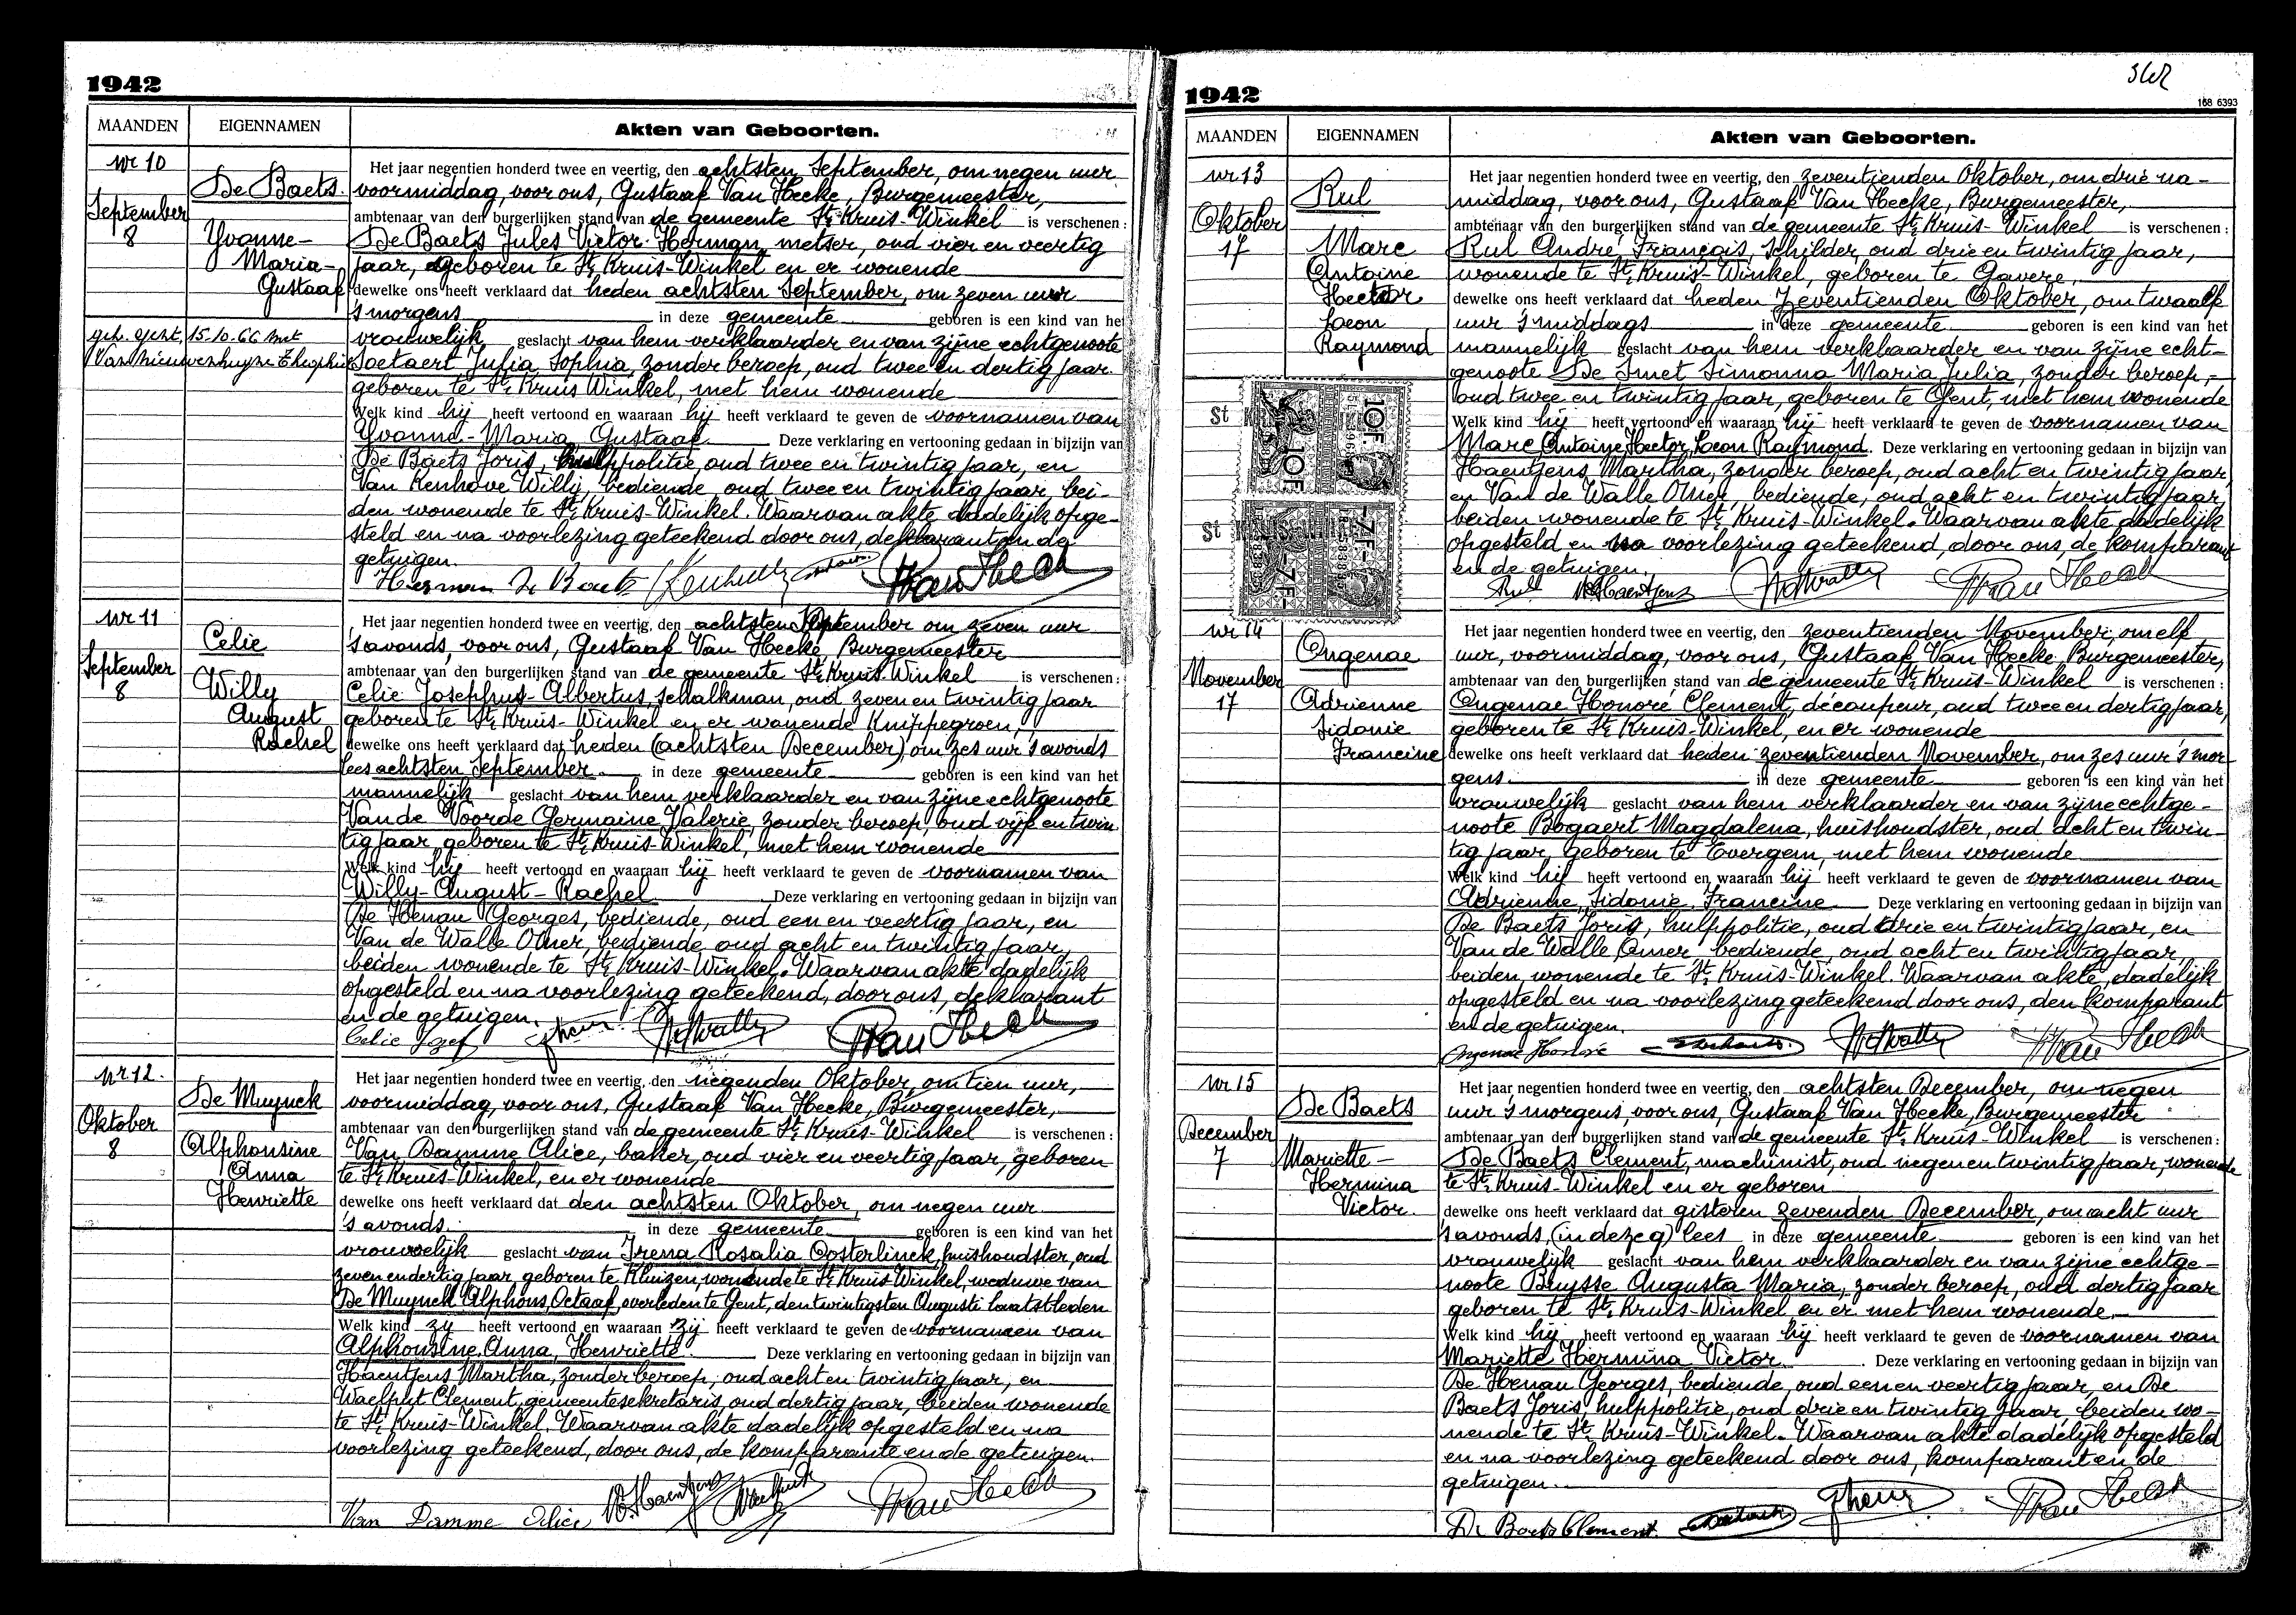 1942
MAANDEN
EIGENNAMEN
Akten van Geboorten.
nr 10
De Baets.
September
8
Yvonne-
Maria-
Gustaaf
geh. Gent, 15.10.66 met
Van Nieuwenhuyze Theophiel
Het jaar negentien honderd twee en veertig, den achtsten September, om negen uur
voormiddag, voor ons, Gustaaf Van Hecke, Burgemeester,
ambtenaar van den burgerlijken stand van de gemeente St. Kruis-Winkel is verschenen :
De Baets Jules Victor Herman, metser, oud vier en veertig
jaar, geboren te St. Kruis-Winkel en er wonende
dewelke ons heeft verklaard dat heden achtsten September, om zeven uur
's morgens in deze gemeente geboren is een kind van het
vrouwelijk geslacht van hem verklaarder en van zijne echtgenoote
Soetaert Julia Sophia, zonder beroep, oud twee en dertig jaar
geboren te St. Kruis Winkel, met hem wonende
Welk kind hij heeft vertoond en waaraan hij heeft verklaard te geven de voornamen van
Yvonne-Maria Gustaaf Deze verklaring en vertooning gedaan in bijzijn van
De Baets Joris, hulppolitie, oud twee en twintig jaar, en
Van Kenhove Willy, bediende, oud twee en twintig jaar, bei-
den wonende te St. Kruis-Winkel. Waarvan akte dadelijk opge-
steld en na voorlezing geteekend door ons, deklarant en de
getuigen.
Herman De Baets
nr 11
Celie
September
8
Willy
August
Rachel
Het jaar negentien honderd twee en veertig, den achtsten September om zeven uur
's avonds, voor ons, Gustaaf Van Hecke, Burgemeester
ambtenaar van den burgerlijken stand van de gemeente St. Kruis Winkel is verschenen :
Celie Josephus-Albertus, schalkman, oud zeven en twintig jaar
geboren te St. Kruis-Winkel en er wonende Knippegroen,
dewelke ons heeft verklaard dat heden (achtsten December), om zes uur 's avonds
lees achtsten September in deze gemeente geboren is een kind van het
mannelijk geslacht van hem verklaarder en van zijne echtgenoote
Van de Voorde Germaine Valerie, zonder beroep, oud vijf en twin
tig jaar geboren te St. Kruis-Winkel, met hem wonende
Welk kind hij heeft vertoond en waaraan hij heeft verklaard te geven de voornamen van
Willy-August-Rachel Deze verklaring en vertooning gedaan in bijzijn van
De Henau Georges, bediende, oud een en veertig jaar, en
Van de Walle Omer, bediende oud acht en twintig jaar,
beiden wonende te St. Kruis-Winkel. Waarvan akte dadelijk
opgesteld en na voorlezing geteekend, door ons, deklarant
en de getuigen.
Celie Jozef
nr 12.
De Muynck
Oktober
8
Alphonsine
Anna
Henriette
Het jaar negentien honderd twee en veertig, den negenden Oktober, om tien uur,
voormiddag, voor ons, Gustaaf Van Hecke, Burgemeester,
ambtenaar van den burgerlijken stand van de gemeente St. Kruis-Winkel is verschenen :
Van Damme Alice, baker, oud vier en veertig jaar, geboren
te St. Kruis-Winkel, en er wonende
dewelke ons heeft verklaard dat den achtsten Oktober, om negen uur
's avonds. in deze gemeente geboren is een kind van het
vrouwelijk geslacht van Irena Rosalia Oosterlinck, huishoudster, oud
zeven en dertig jaar, geboren te Kluizen, wonende te St. Kruis Winkel, weduwe van
De Muynck Alphons, Octaaf, overleden te Gent, den twintigsten Augusti laatstleden
Welk kind zij heeft vertoond en waaraan zij heeft verklaard te geven de voornamen van
Alphonsine, Anna, Henriette. Deze verklaring en vertooning gedaan in bijzijn van
Haentjens Martha, zonder beroep, oud acht en twintig jaar, en
Waelput Clement, gemeentesekretaris, oud dertig jaar, beiden wonende
te St. Kruis-Winkel. Waarvan akte dadelijk opgesteld en na
voorlezing geteekend, door ons, de komparante en de getuigen.
Van Damme Alice M. Haentjens
SKW
1942
168 6393
MAANDEN
EIGENNAMEN
Akten van Geboorten.
nr 13
Rul
Oktober
17
Marc
Antoine
Hector
Leon
Raymond
St
10F
10F
St KRUIS-WINKEL
7F
7F
Het jaar negentien honderd twee en veertig, den zeventienden Oktober, om drie na-
middag, voor ons, Gustaaf Van Hecke, Burgemeester,
ambtenaar van den burgerlijken stand van de gemeente St. Kruis-Winkel is verschenen :
Rul André, François, schilder, oud drie en twintig jaar,
wonende te St. Kruis-Winkel, geboren te Gavere,
dewelke ons heeft verklaard dat heden zeventienden Oktober, om twaalf
uur 's middags in deze gemeente geboren is een kind van het
mannelijk geslacht van hem verklaarder en van zijne echt-
genoote De Smet Simonna Maria Julia, zonder beroep,-
oud twee en twintig jaar, geboren te Gent, met hem wonende
Welk kind hij heeft vertoond en waaraan hij heeft verklaard te geven de voornamen van
Marc, Antoine, Hector, Leon Raymond. Deze verklaring en vertooning gedaan in bijzijn van
Haentjens Martha, zonder beroep, oud acht en twintig jaar,
en Van de Walle Omer, bediende, oud acht en twintig jaar,
beiden wonende te St. Kruis-Winkel. Waarvan akte dadelijk
opgesteld en na voorlezing geteekend, door ons, de komparant
en de getuigen.
Rul M Haentjens
nr 14
Ongenae
November
17
Adrienne
Sidonie
Francine
Het jaar negentien honderd twee en veertig, den zeventienden November, om elf
uur, voormiddag, voor ons, Gustaaf Van Hecke Burgemeester,
ambtenaar van den burgerlijken stand van de gemeente St. Kruis-Winkel is verschenen :
Ongenae Honoré Clement, découpeur, oud twee en dertig jaar,
geboren te St. Kruis-Winkel, en er wonende
dewelke ons heeft verklaard dat heden zeventienden November, om zes uur 's mor
gens. in deze gemeente geboren is een kind van het
vrouwelijk geslacht van hem verklaarder en van zijne echtge-
noote Bogaert Magdalena, huishoudster, oud acht en twin-
tig jaar, geboren te Evergem, met hem wonende
Welk kind hij heeft vertoond en waaraan hij heeft verklaard te geven de voornamen van
Adrienne, Sidonie, Francine. Deze verklaring en vertooning gedaan in bijzijn van
De Baets Joris, hulppolitie, oud drie en twintig jaar, en
Van de Walle Omer bediende, oud acht en twintig jaar,
beiden wonende te St. Kruis-Winkel. Waarvan akte, dadelijk
opgesteld en na voorlezing geteekend door ons, den komparant
en de getuigen.
Ongenae Honoré
nr 15
De Baets
December
7
Mariette-
Hermina
Victor.
Het jaar negentien honderd twee en veertig, den achtsten December, om negen
uur 's morgens, voor ons, Gustaaf Van Hecke, Burgemeester
ambtenaar van den burgerlijken stand van de gemeente St. Kruis-Winkel is verschenen :
De Baets Clement, machinist, oud negen en twintig jaar, wonende
te St. Kruis-Winkel en er geboren
dewelke ons heeft verklaard dat gisteren zevenden December, om acht uur
's avonds, (in deze g) lees in deze gemeente geboren is een kind van het
vrouwelijk geslacht van hem verklaarder en van zijne echtge-
noote Buysse Augusta Maria, zonder beroep, oud dertig jaar
geboren te St. Kruis-Winkel en er met hem wonende
Welk kind hij heeft vertoond en waaraan hij heeft verklaard te geven de voornamen van
Mariette Hermina Victor. Deze verklaring en vertooning gedaan in bijzijn van
De Henau Georges, bediende, oud een en veertig jaar, en De
Baets Joris, hulppolitie, oud drie en twintig jaar, beiden wo-
nende te St. Kruis-Winkel. Waarvan akte dadelijk opgesteld
en na voorlezing geteekend door ons, komparant en de
getuigen.
De Baets Clement.